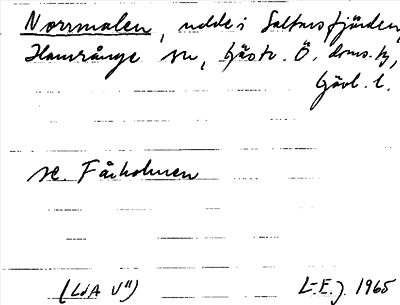 Norrmalen, udde i Saltarsfjärden,
Hamrånge sn, Gästr. Ö. doms.ty,
Gävl. l.
se. Fårholmen
(LSA V¹¹) L-E.J. 1965